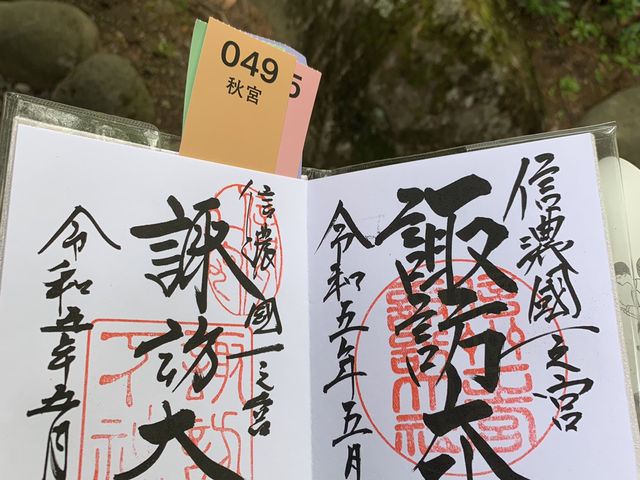 049
秋宮
5
信濃國一之宮
諏訪大
令和五年五月
信濃國一之宮
諏訪大
令和五年五月